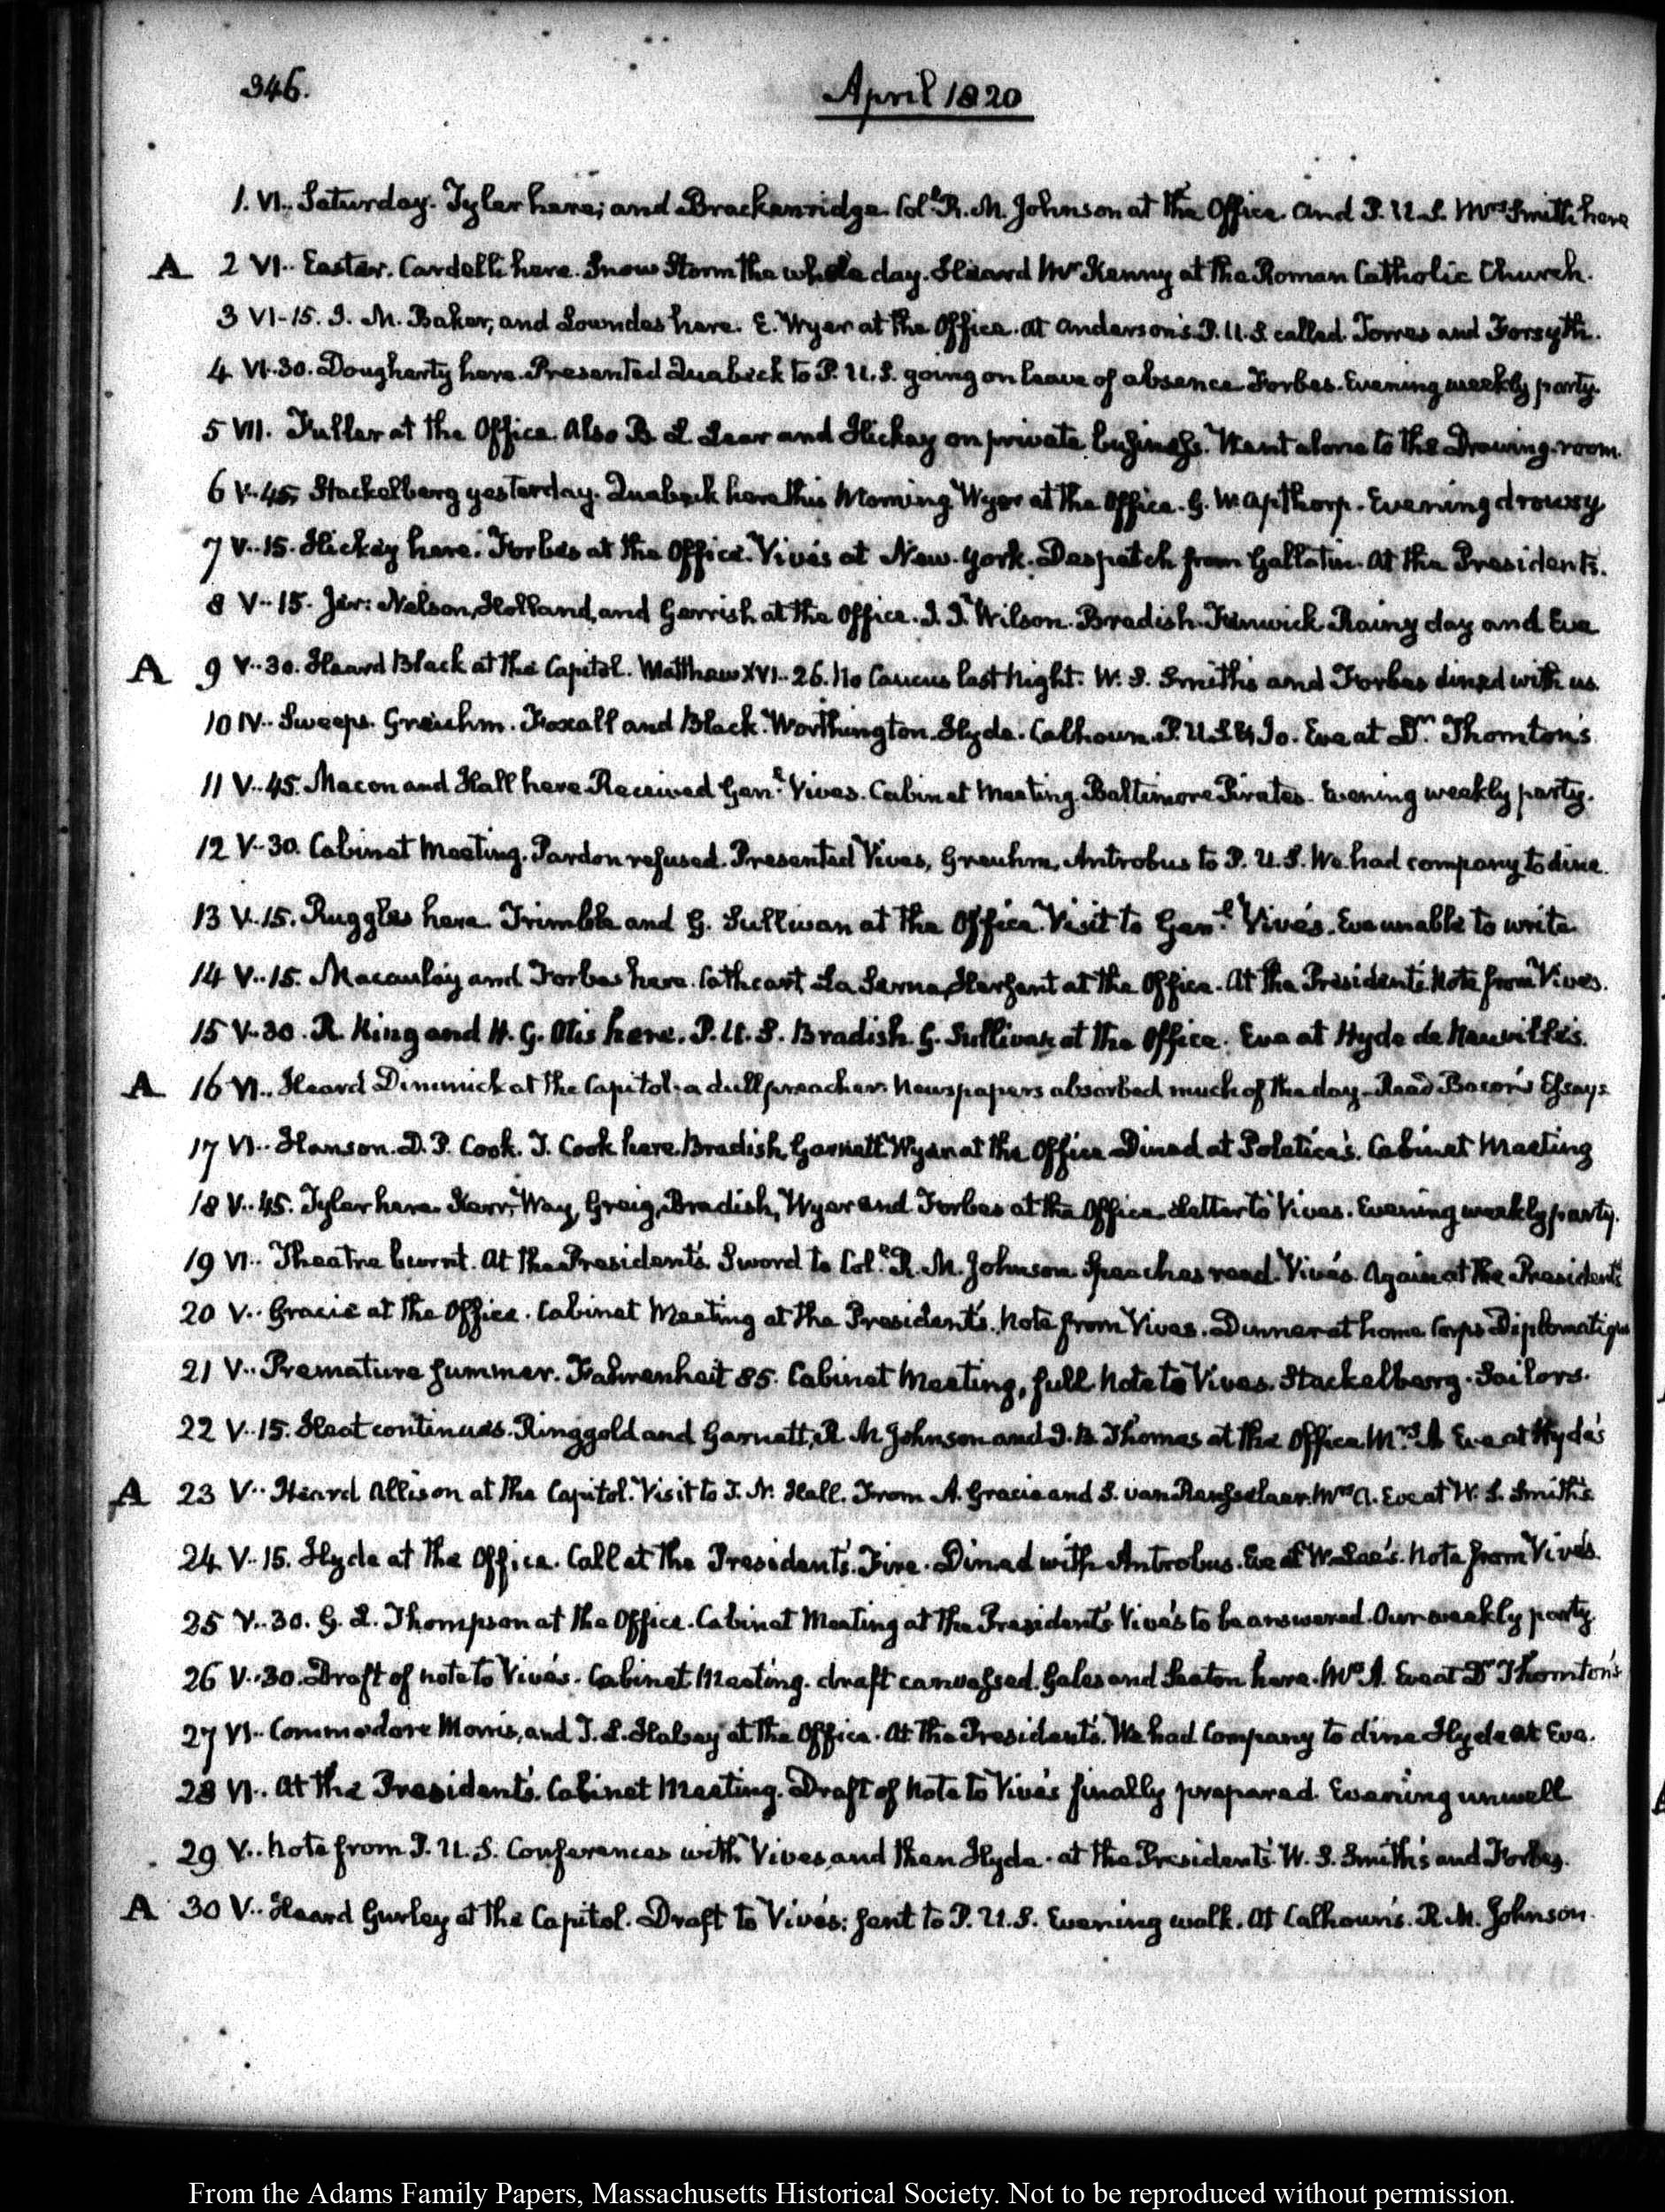 346.
April 1820
1. VI.. Saturday. Tyler here; and Brackenridge. Coll. R. M. Johnson at the Office. and P. U. S. Mrs Smith here
A 2 VI.. Easter. Cardelli here. Snow Storm the whole day. Heard Mr Kenny at the Roman Catholic Church.
3 VI-15. I. M. Baker, and Lowndes here. E. Wyer at the Office. at Anderson's. P. U. S. called. Torres and Forsyth.
4 VI.30. Dougherty here. Presented Quabeck to P. U. S. going on leave of absence. Forbes. Evening weekly party.
5 VII. Fuller at the Office. Also B. L. Lear and Hickey on private business. Went alone to the Drawing-room.
6 V..45. Stackelberg yesterday. Quabeck here this Morning. Wyer at the Office. G. W. Apthorp. Evening drowsy
7 V..15. Hickey here. Forbes at the Office. Vivés at New-York. Despatch from Gallatin. At the President's.
8 V..15. Jer: Nelson, Holland, and Gerrish at the Office. J. J. Wilson. Bradish. Fenwick. Rainy day and Eve
A 9 V..30. Heard Black at the Capitol. Matthew XVI..26. No Caucus last Night. W. S. Smith's and Forbes dined with us.
10 IV.. Sweeps. Greuhm. Foxall and Black. Worthington. Hyde. Calhoun. P. U. S. Eve at Dr. Thornton's
11 V..45. Macon and Hall here. Received Genl. Vives. Cabinet Meeting. Baltimore Pirates. Evening weekly party.
12 V..30. Cabinet Meeting. Pardon refused. Presented Vives, Greuhm, Antrobus to P. U. S. We had company to dine.
13 V.15. Ruggles here. Trimble and G. Sullivan at the Office. Visit to Genl. Vivés. Eve unable to write.
14 V..15. Macaulay and Forbes here. Cathcart, La Serna, Hersant at the Office. At the President's. Note from Vives.
15 V..30. R. King and H. G. Otis here. P. U. S. Bradish. G. Sullivan at the Office. Eve at Hyde de Neuville's.
A 16 VI.. Heard Dimmick at the Capitol. a dull preacher. Newspapers absorbed much of the day. Read Bacon's Essays
17 VI.. Hanson. D. P. Cook. J. Cook here. Bradish, Garnett. Wyer at the Office. Dined at Poletica's. Cabinet Meeting
18 V..45. Tyler here. Kerr, Way, Greig, Bradish, Wyer and Forbes at the Office. Letter to Vives. Evening weekly party.
19 VI.. Theatre burnt. At the President's. Sword to Coll. R. M. Johnson. Speeches read. Vivés. Again at the President's
20 V.. Gracie at the Office. Cabinet Meeting at the President's. Note from Vives. Dinner at home. Corps Diplomatique
21 V.. Premature Summer. Fahrenheit 85. Cabinet Meeting, full. Note to Vives. Stackelberg. Sailors.
22 V..15. Heat continues. Ringgold and Garnett, R. M. Johnson and J. B. Thomas at the Office. Mrs. A Eve at Hyde's
A 23 V.. Heard Allison at the Capitol. Visit to J. Hall. From A. Gracie and S. van Rensselaer. Mrs A. Eve at W. S. Smith's
24 V..15. Hyde at the Office. Call at the President's. Fire. Dined with Antrobus. Eve at W. Lee's. Note from Vivés.
25 V..30. G. L. Thompson at the Office. Cabinet Meeting at the President's. Vivés to be answered. Our weekly party
26 V..30. Draft of note to Vivés. Cabinet Meeting. draft canvassed. Gales and Seaton here. Mrs A. Eve at Dr Thornton's
27 VI.. Commodore Morris, and T. L. Halsey at the Office. At the President's. We had Company to dine. Hyde at Eve.
28 VI.. At the President's. Cabinet Meeting. Draft of Note to Vivés finally prepared. Evening unwell
29 V.. Note from P. U. S. Conferences with Vives, and then Hyde. at the President's. W. S. Smith's and Forbes.
A 30 V.. Heard Gurley at the Capitol. Draft to Vivés: sent to P. U. S. Evening walk. At Calhoun's. R. M. Johnson.
From the Adams Family Papers, Massachusetts Historical Society. Not to be reproduced without permission.